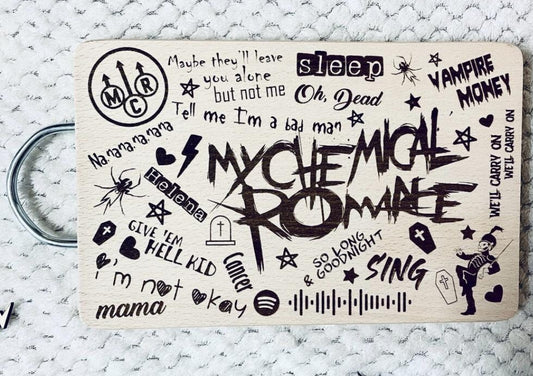 Maybe they'll leave
you alone
but not me
sleep
Oh, Dead
VAMPIRE
MONEY
M
C
R
Tell me I'm a bad man
Na na na na na na
MY CHEMICAL
ROMANCE
WE'LL CARRY ON
WE'LL CARRY ON
Helena
GIVE 'EM
HELL KID
Cancer
SO LONG
& GOODNIGHT
SING
i'm not okay
mama